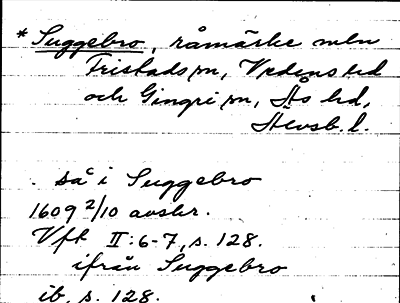 * Suggebro, råmärke mln
Fristads sn, Vedens hd
och Gingri sn, Ås hd,
Älvsb. l.
. så i Suggebro
1609 2/10 avskr.
Vft II:6-7, s. 128.
ifrån Suggebro
ib. s. 128.